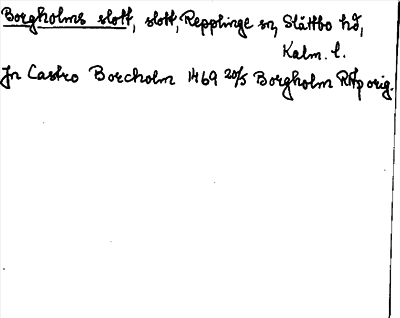 Borgholms slott, slott, Repplinge sn, Slättbo hd,
Kalm. l.
Jn Castro Borcholm 1469 20/5 Borgholm RAp orig.